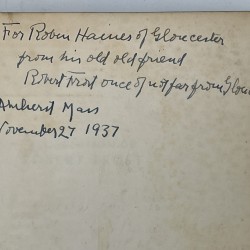 For Robin Haines of Gloucester
from his old old friend
Robert Frost once of not far from Glouc
Amherst Mass
November 27 1937